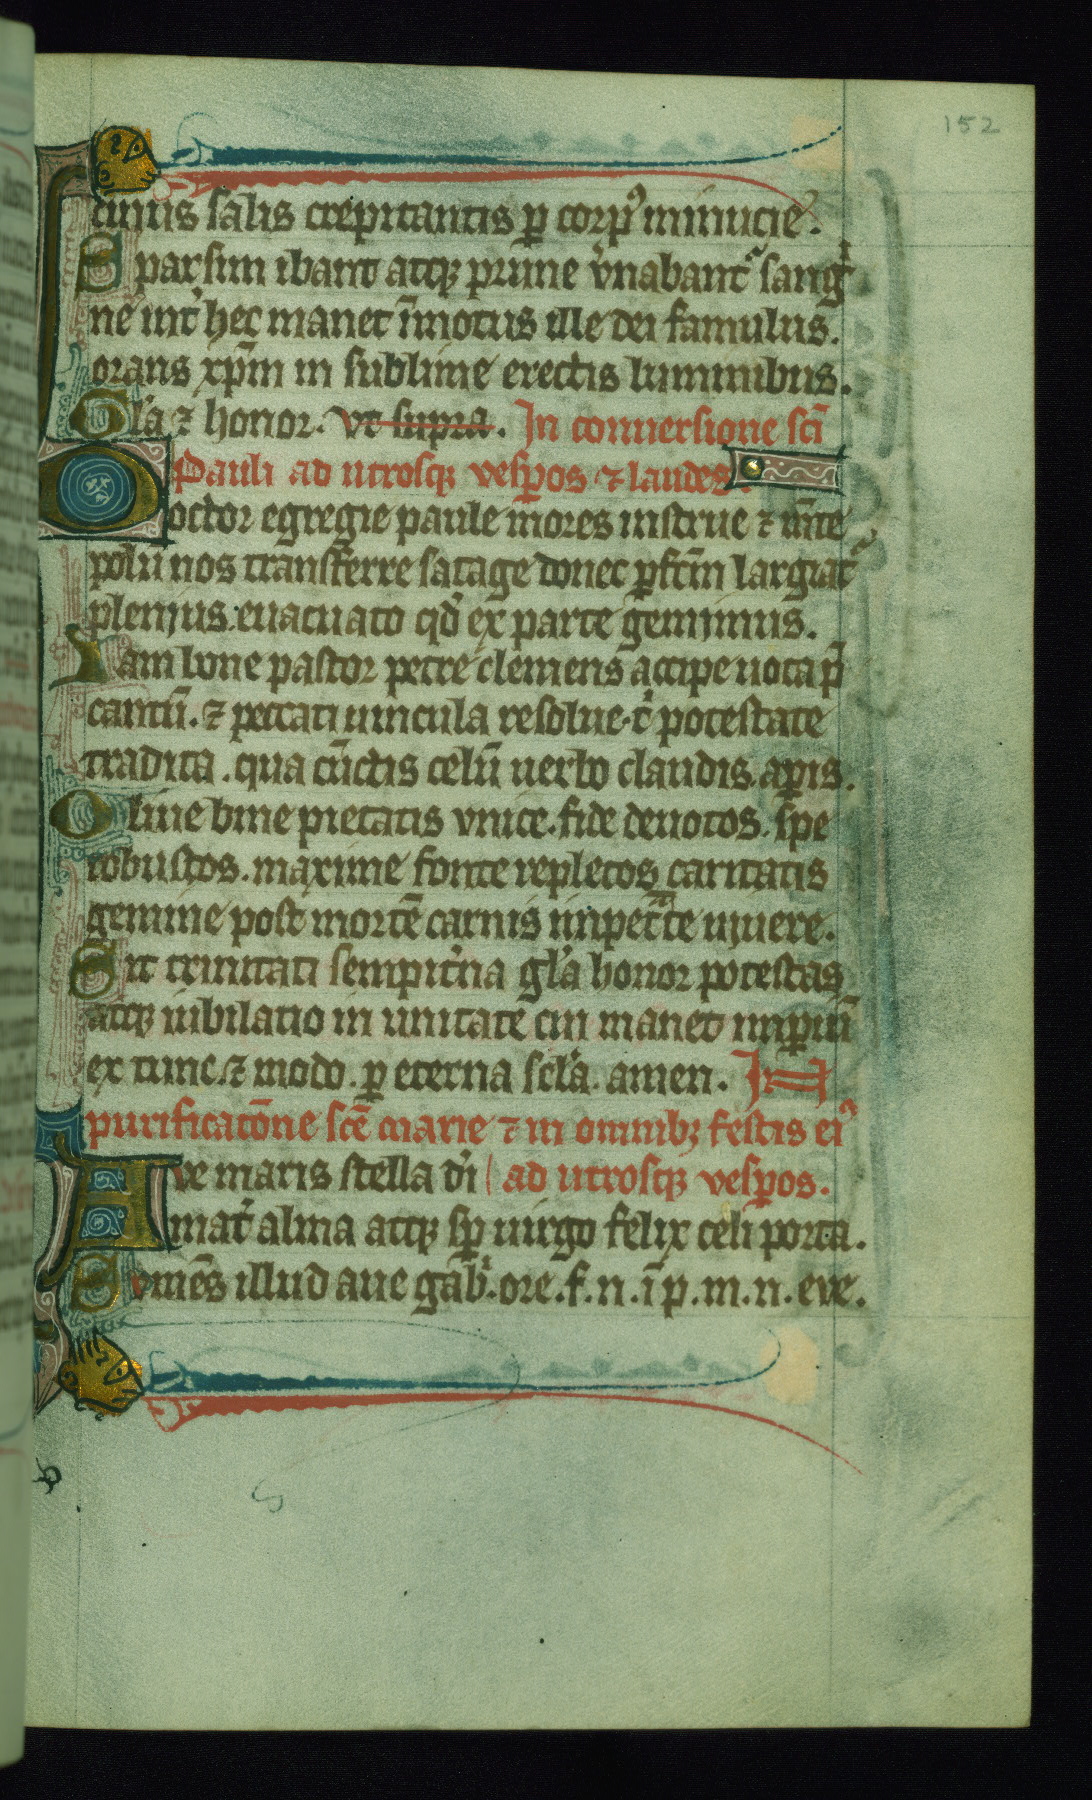 152
cuius salis crepitantis ꝑ corpꝰ minucie.
Sparsim ibant atqꝫ prune v̾nabant᷑ sangⁱ
ne int̾ hec manet īmotus ille dei famulus.
orans xp̄m in sublime erectis luminibus.
Gl̾a ⁊ honor. vt supra. In conuersione sc̄i
Pauli ad utrosqꝫ vesꝑos ⁊ laudes.
Doctor egregie paule mores instrue ⁊ m̄te
polū nos transferre satage donec ꝑfc̄m largiat᷑
plenius euacuato qd̾ ex parte gerimus.
Iam bone pastor petre clemens accipe uota p̄
cantū. ⁊ peccati uincula resolue. tⁱ potestate
tradita. qua cūctis celū uerbo claudis aꝑis.
Oliue bine pietatis vnice. fide deuotos. spe
robustos. maxime fonte repletos caritatis
gemine post mortē carnis impet᷑te uiuere.
Sit trinitati sempit̾na gl̾a honor potestas
atqꝫ iubilatio in unitate cui manet imꝑiū
ex tunc. ⁊ modo. ꝑ eterna scl̾a. amen. In
purificatōne sc̄e marie ⁊ in omnibꝫ festis eiꝰ
Ave maris stella d̾i ad utrosqꝫ vesꝑos.
mat̾ alma atqꝫ sꝑ uirgo felix celi porta.
Sumēs illud aue gab̾. ore. f. n. ī p. m. n. eve.